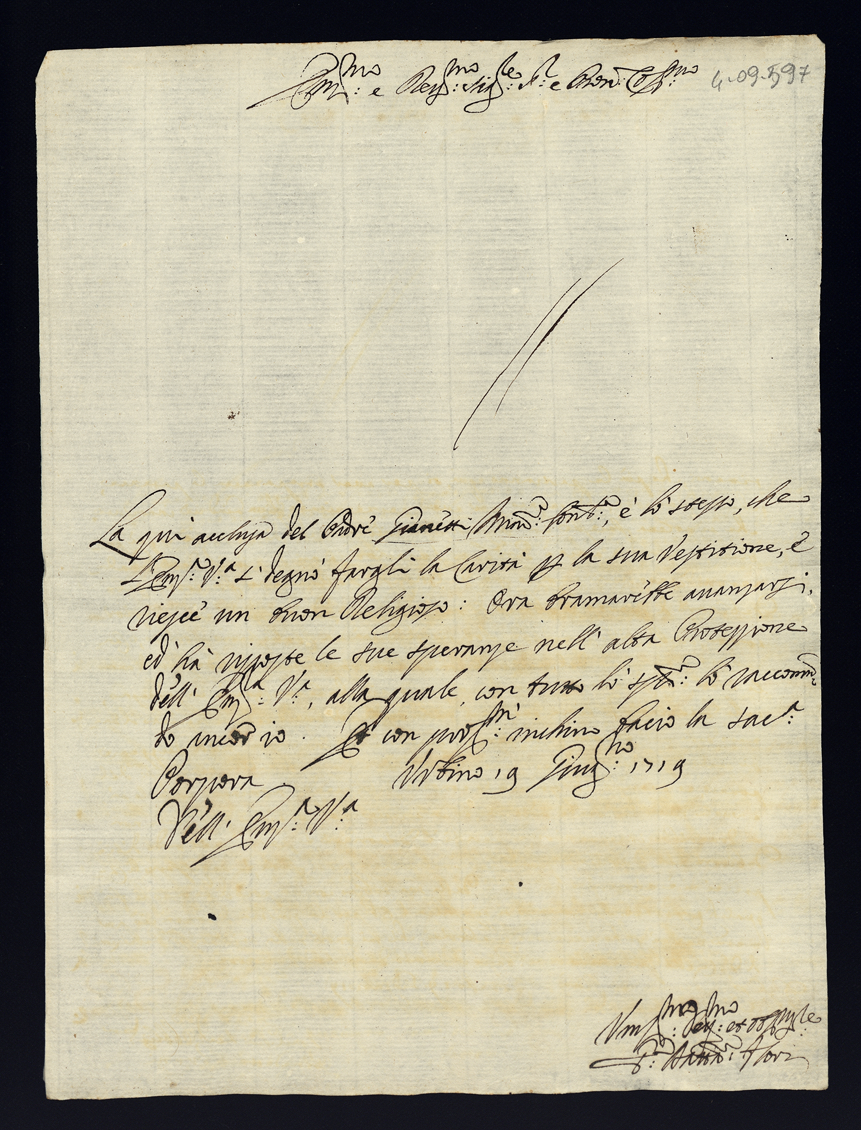 Em:mo e Rev:mo Sig:re S:r e Pron Col:mo 4.09.597
La qui acclusa del Padre Gianetti Min:e Conv:e, è lo stesso, che
l'Em:a V:a si degnò fargli la Carità p la sua Vestitione, è
riescè un buon Religioso: Ora bramarebbe avanzarsi,
ed hà riposte le sue speranze nell'alta Protezzione
dell'Em:a V:a, alla quale, con tutto lo sp:o lo raccoman
do ancor io. E con prof:mo inchino facio la sac:a
Porpora. Urbino 19 Giug:no 1719
Dell'Em:a V:a
Um:mo Dev:mo et obb